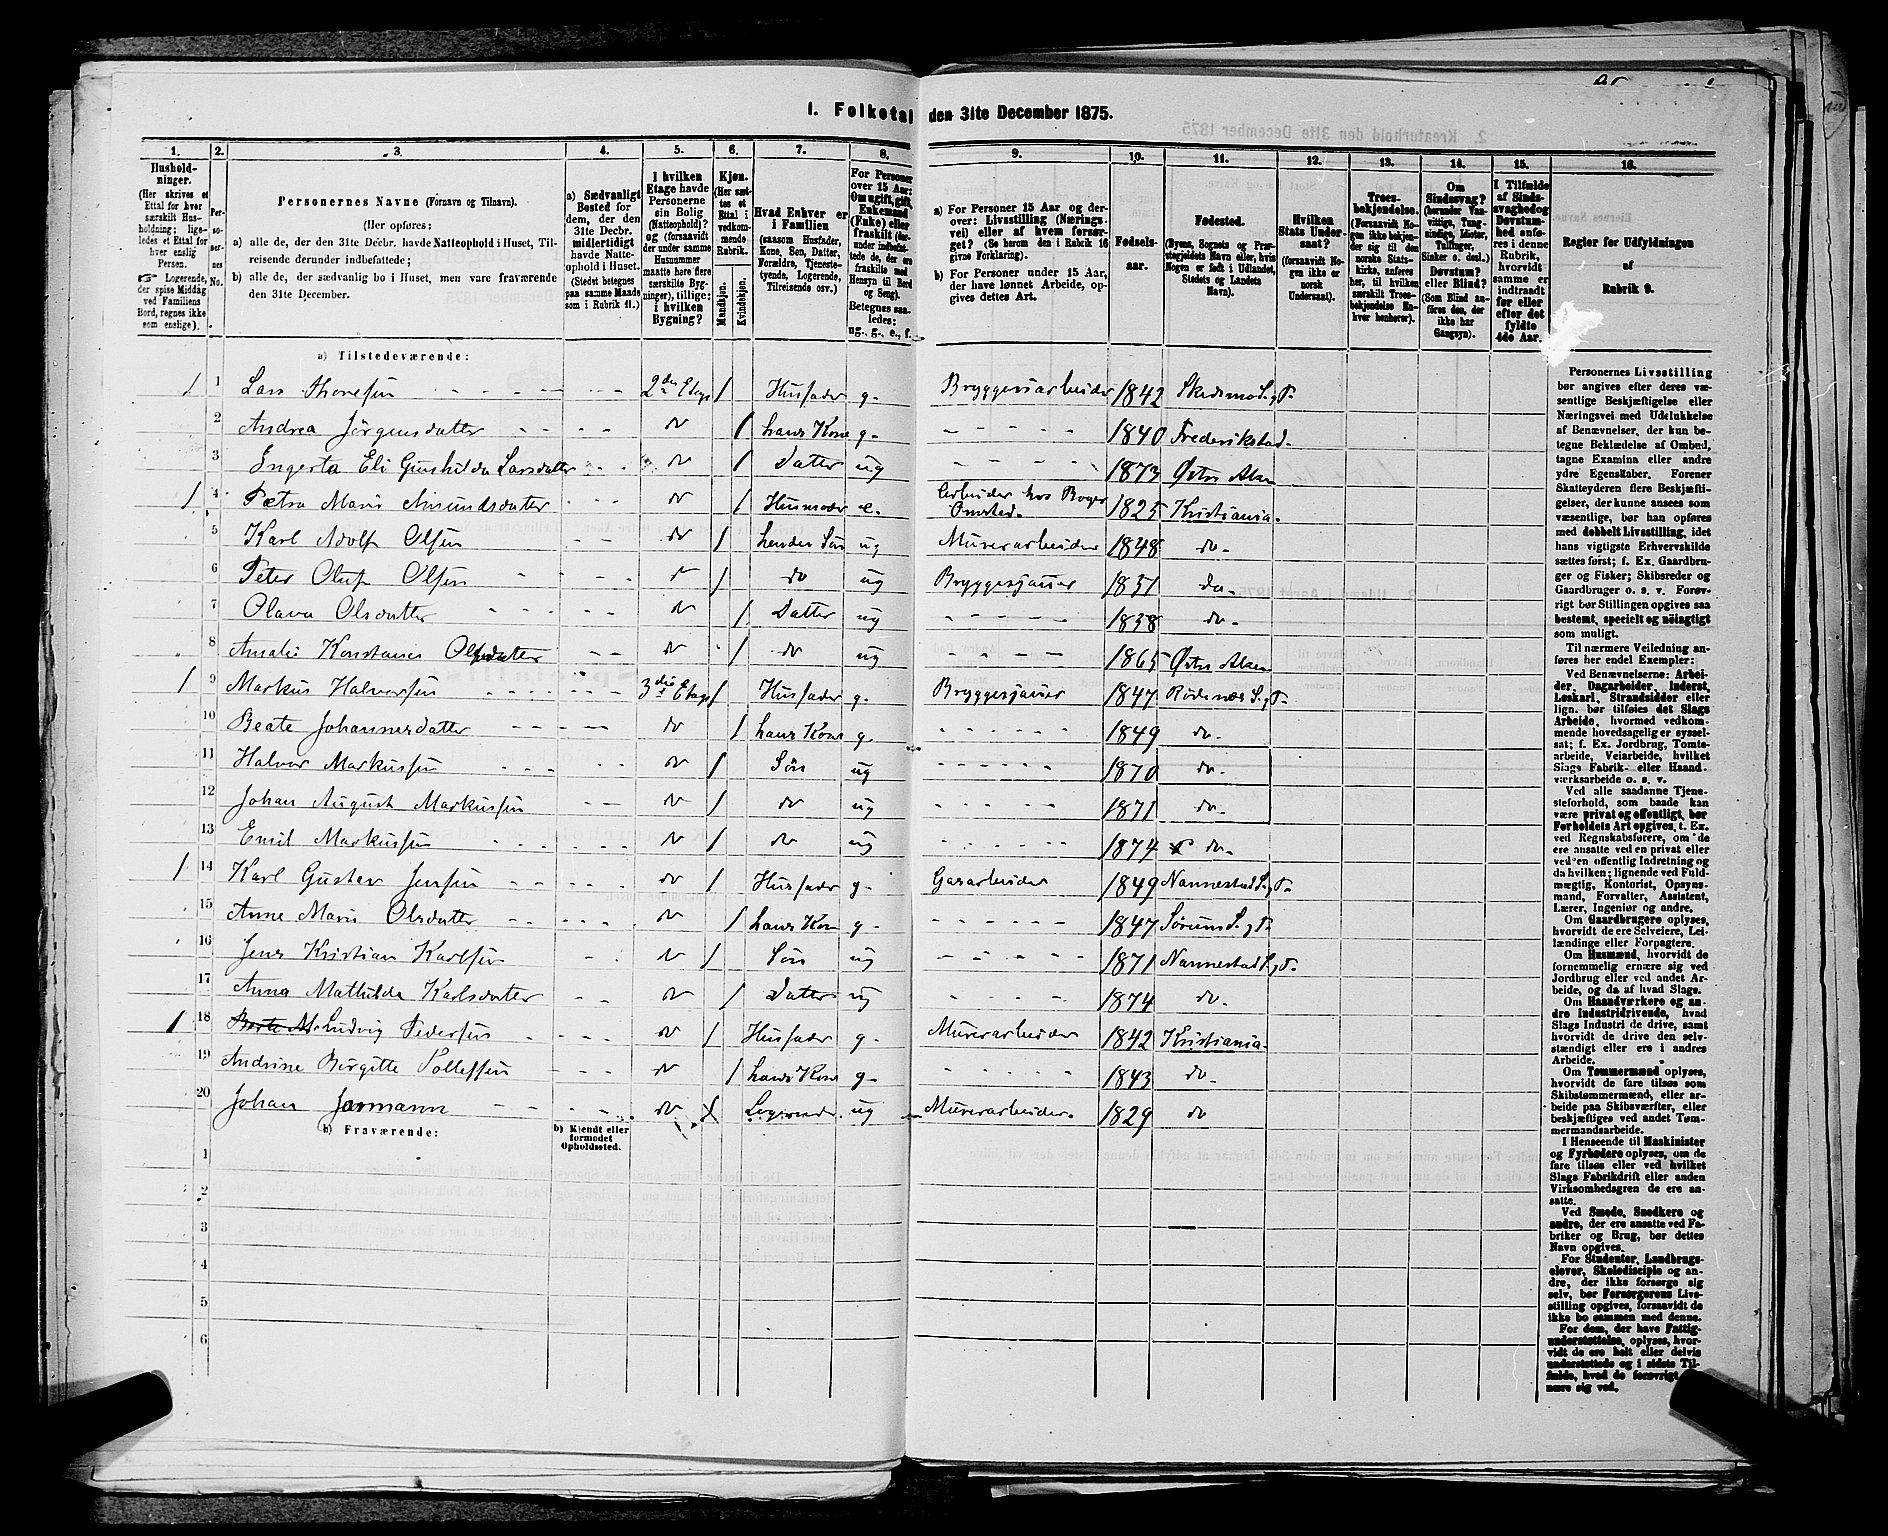 I. Folketal den 31te December 1875.
1. 2. 3. 4. 5. 6. 7. 8. 9. 10. 11. 12. 13. 14. 15. 16.
Husholdninger.
(Her skrives et
Ettal for hver
særskilt Husholdning;
ligeledes et Ettal for
hver enslig
Person.
☞ Logerende,
der spise Middag
ved Familiens
Bord, regnes ikke
som enslige).
Personernes No.
Personernes Navne (Fornavn og Tilnavn).
(Her opføres:
a) alle de, der den 31te Decbr. havde Natteophold i Huset, Tilreisende derunder indbefattede;
b) alle de, der sædvanlig bo i Huset, men vare fraværende
den 31te December.
a) Sædvanligt
Bosted for
dem, der den
31te Decbr.
midlertidigt
havde Natteophold
i Huset.
(Stedet betegnes
paa samme Maade
som i Rubrik 11.)
I hvilken
Etage havde
Personerne
sin Bolig
(Natteophold)?
og (forsaavidt
der under samme
Husnummer
maatte høre flere
særskilte Bygninger),
tillige:
i hvilken
Bygning?
Kjøn.
(Her sættes
et Ettal i
vedkommende
Rubrik.
Mandkjøn.
Kvindekjøn.
Hvad Enhver er
i Familien
(saasom Husfader,
Kone, Søn, Datter,
Forældre, Tjenestetyende,
Logerende,
Tilreisende osv.)
For Personer
over 15 Aar:
Om ugift, gift,
Enkemand
(Enke) eller
fraskilt
Betegnes saaledes:
ug., g., e., f.
a) For Personer 15 Aar og derover:
Livsstilling (Næringsvei)
eller af hvem forsørget?
(Se herom den i Rubrik 16
givne Forklaring).
b) For Personer under 15 Aar,
der have lønnet Arbeide, opgives
dettes Art.
Fødselsaar.
Fødested.
(Byens, Sognets og Præstegjeldets
Navn eller, hvis
Nogen er født i Udlandet,
Stedets og Landets
Navn).
Hvilken
Stats Undersaat?
(forsaavidt Nogen
ikke er
norsk
Undersaat).
Troesbekjendelse.
(Forsaavidt Nogen
ikke bekjender
sig til den
norske Statskirke,
anføres
her, til hvilken
særskilt Troesbekjendelse
Enhver
henhører).
Om
Sindssvag?
(herunder Vanvittige,
Tungsindige,
Idioter,
Tullinger,
Sinker o. desl.)
Døvstum?
eller Blind?
(Som Blind anføres
den, der
ikke har
Gangsyn).
I Tilfælde
af Sindssvaghed
og
Døvstumhed
anføres
i denne
Rubrik,
hvorvidt
samme er
indtraadt
før eller
efter det
fyldte
4de Aar.
Regler for Udfyldningen
af
Rubrik 9.
a) Tilstedeværende:
1 1 Lars Thoresen 2den Etage 1 Husfader g. Bryggeriarbeider 1842 Skedsmo S. og P.
2 Andrea Jörgensdatter do 1 hans Kone g. 1840 Frederikstad
3 Engerta Eli Gunhilda Larsdatter do 1 Datter ug 1873 Østre Aker
1 4 Petra Marie Amundsdatter do 1 Husmoder e. Arbeider hos Onsted. 1825 Kristiania.
5 Karl Adolf Olsen do 1 hendes Søn ug Murerarbeider 1848 do
6 Peter Oluf Olsen do 1 do ug Bryggesjauer 1851 do
7 Olava Olsdatter do 1 Datter ug 1858 do
8 Amalie Konstance Olsdatter do 1 do ug 1865 Østre Aker
1 9 Markus Halvorsen 3die Etage 1 Husfader g. Bryggesjauer 1847 Rødenæs S. og P.
10 Beate Johannesdatter do 1 hans Kone g. 1849 do
11 Halvor Markussen do 1 Søn ug 1870 do
12 Johan August Markussen do 1 do ug 1871 do
13 Emil Markussen do 1 do ug 1874 do
1 14 Karl Gustav Jensen do 1 Husfader g. Gasarbeider 1849 Nannestad S. og P.
15 Anne Marie Olsdatter do 1 hans Kone g. 1847 Sørum S. og P.
16 Jens Kristian Karlsen do 1 Søn ug 1871 Nannestad S. og P.
17 Anna Mathilda Karlsdatter do 1 Datter ug 1874 do
1 18 Ludvig Pedersen do 1 Husfader g. Murerarbeider 1842 Kristiania
19 Andrine Birgitte Tollefsen do 1 hans Kone g. 1843 do
20 Johan Jarmann do 1 Logerende ug Murerarbeider 1829 do
b) Fraværende:
b) Kjendt eller
formodet
Opholdssted.
1
2
3
4
5
6
Personernes Livsstilling
bør angives efter deres væsentlige
Beskjæftigelse eller
Næringsvei med Udelukkelse
af Benævnelser, der kun betegne
Beklædelse af Ombud,
tagne Examina eller andre
ydre Egenskaber. Forener
Skatteyderen flere Beskjæftigelser,
der kunne ansees som
væsentlige, bør han opføres
med dobbelt Livsstilling, idet
hans vigtigste Erhvervskilde
sættes først; f. Ex. Gaardbruger
og Fisker; Skibsreder og
Gaardbruger o. s. v. Forøvrigt
bør Stillingen opgives saa
bestemt, specielt og nøiagtigt
som muligt.
Til nærmere Veiledning anføres
her endel Exempler:
Ved Benævnelserne: Arbeider,
Dagarbeider, Inderst,
Løskarl, Strandsidder eller
lign. bør tilføies det Slags
Arbeide, hvormed vedkommende
hovedsagelig er sysselsat;
f. Ex. Jordbrug, Tomtearbeide,
Veiarbeide, hvilket
Slags Fabrik- eller Haandværksarbeide
o. s. v.
Ved alle saadanne Tjenesteforhold,
som baade kan
være privat og offentligt, bør
Forholdets Art opgives, t. Ex.
ved Regnskabsførere, om de
ere ansatte ved en privat eller
ved en offentlig Indretning og
da hvilken; lignende ved Fuldmægtig,
Kontorist, Opsynsmand,
Forvalter, Assistent,
Lærer, Ingeniør og andre.
Om Gaardbrugere oplyses,
hvorvidt de ere Selveiere, Leilændinge
eller Forpagtere.
Om Husmænd, hvorvidt de
fornemmelig ernære sig ved
Jordbrug eller ved andet Arbeide,
og da af hvad Slags.
Om Haandværkere og andre
Industridrivende, hvad
Slags Industri de drive, samt
hvorvidt de drive den selvstændigt
eller ere i andres
Arbeide.
Om Tømmermænd oplyses,
hvorvidt de fare tilsøs som
Skibstømmermænd, eller arbeide
paa Skibsværfter, eller
beskjæftiges ved andet Tømmermandsarbeide.
I Henseende til Maskinister
og Fyrbødere oplyses, om de
fare tilsøs eller ved hvilket
Slags Fabrikdrift eller anden
Virksomhedsgren de ere ansatte.
Ved Smede, Snedkere og
andre, der ere ansatte ved Fabriker
og Brug, bør dettes
Navn opgives.
For Studenter, Landbrugselever,
Skoledisciple og andre,
der ikke forsørge sig
selv, bør Forsørgerens Livsstilling
opgives, forsaavidt de
ikke bo sammen med denne.
For dem, der have Fattigunderstøttelse,
oplyses, hvorvidt
de ere helt eller delvis
understøttede og i sidste Tilfælde,
hvad de forøvrigt
nære sig ved.